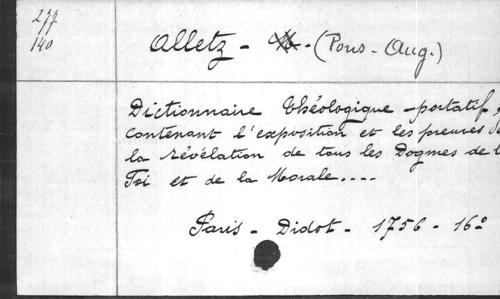 277
140
Alletz - (Pons - Aug.)
Dictionnaire théologique - portatif,
contenant l'exposition et les preuves de
la révélation de tous les Dogmes de l
Foi et de la Morale....
Paris - Didot - 1756 - 16º